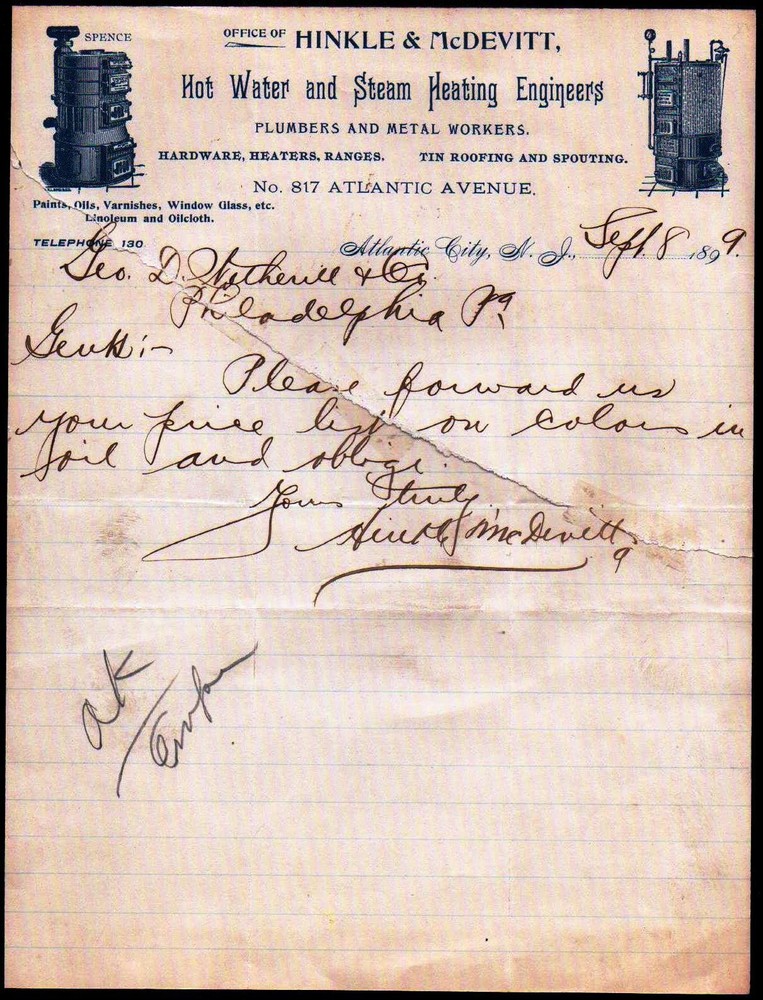 SPENCE
OFFICE OF HINKLE & McDEVITT,
Hot Water and Steam Heating Engineers
PLUMBERS AND METAL WORKERS.
HARDWARE, HEATERS, RANGES. TIN ROOFING AND SPOUTING.
No. 817 ATLANTIC AVENUE.
Paints, Oils, Varnishes, Window Glass, etc.
Linoleum and Oilcloth.
TELEPHONE 130
Atlantic City, N. J., Sept. 8 1899.
Geo. D. Wetherill & Co.
Philadelphia Pa
Gents:-
Please forward us
your price list on colors in
oil and oblige.
Yours truly
Hinkle & McDevitt